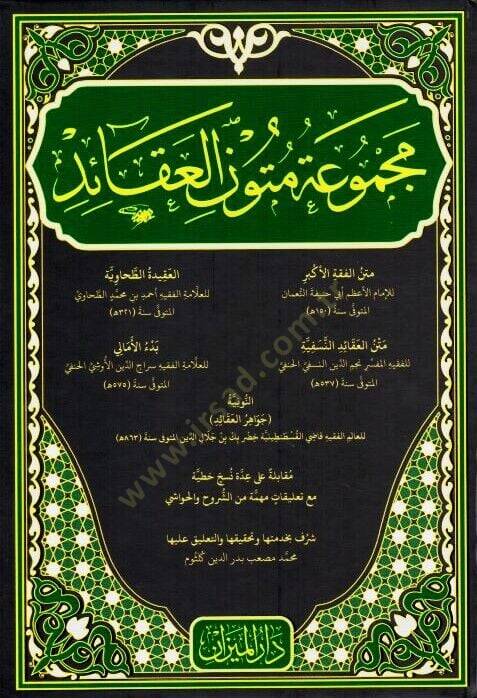 مَجْمُوعَةُ مُتُونِ العَقَائِدِ
متن الفقه الأكبر
للإمام الأعظم أبي حنيفة النعمان
المتوفى سنة (١٥٠هـ)
العقيدة الطحاوية
للعلامة الفقيه أحمد بن محمد الطحاوي
المتوفى سنة (٣٢١هـ)
متن العقائد النسفية
للفقيه المفسر نجم الدين النسفي الحنفي
المتوفى سنة (٥٣٧هـ)
بدء الأمالي
للعلامة الفقيه سراج الدين الأوشي الحنفي
المتوفى سنة (٥٧٥هـ)
النونية
(جواهر العقائد)
للعالم الفقيه قاضي القسطنطينية خضر بك بن جلال الدين المتوفى سنة (٨٦٣هـ)
مقابلة على عدة نسخ خطية
مع تعليقات مهمة من الشروح والحواشي
شرف بخدمتها وتحقيقها والتعليق عليها
محمد مصعب بدر الدين كلثوم
دار الميزان
www.irsad.com.tr